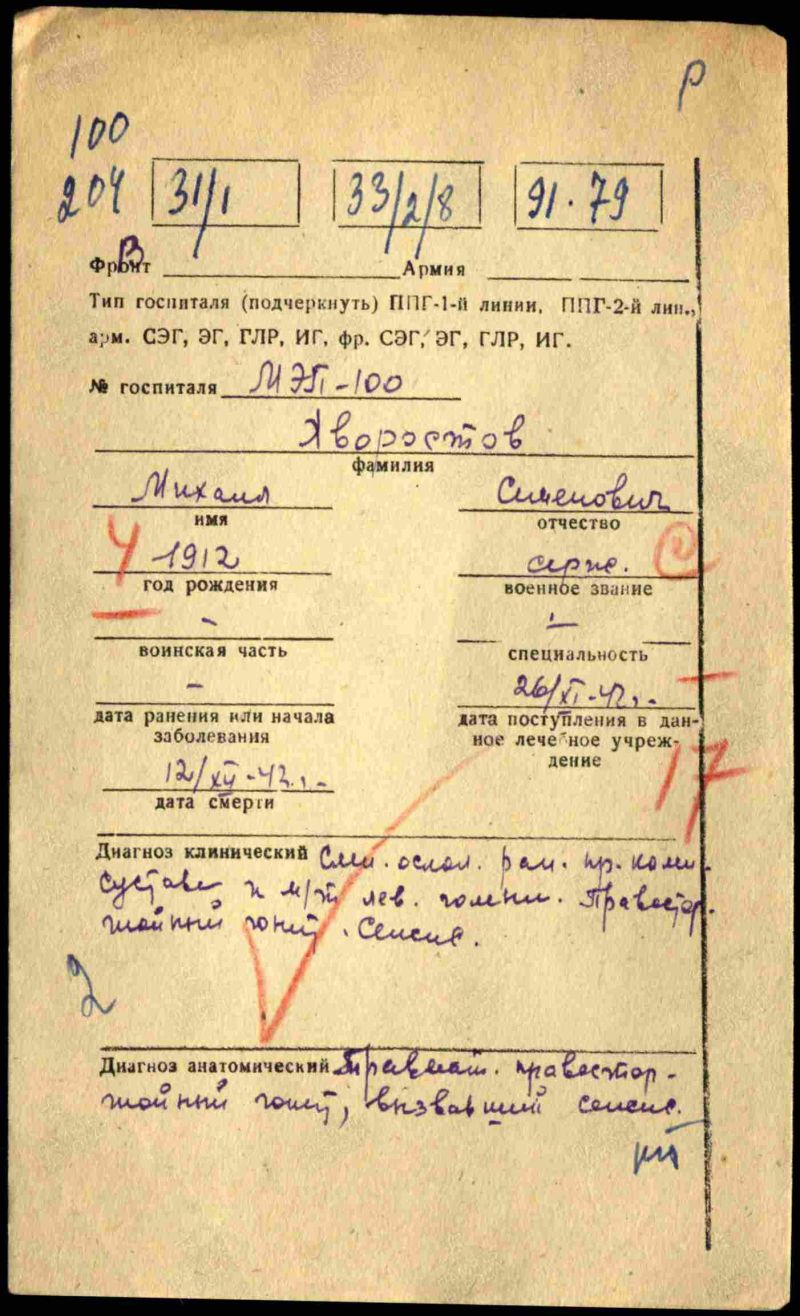 р
100
204 31/1 33/2/8 91.79
В
Фронт Армия
Тип госпиталя (подчеркнуть) ППГ-1-й линии, ППГ-2-й лин.,
арм. СЭГ, ЭГ, ГЛР, ИГ, фр. СЭГ, ЭГ, ГЛР, ИГ.
№ госпиталя МЭП-100
Хворостов
фамилия
Михаил Семенович
имя отчество
Ч 1912 серж.
год рождения военное звание
- -
воинская часть специальность
- 26/XI-42г.
дата ранения или начала заболевания
дата поступления в данное лечебное учреждение
12/XII-42г.
дата смерти
17
Диагноз клинический Слеп. оскол. ран. пр. колен.
сустава и м/т лев. голени. Правостор-
нний гонит. Сепсис.
2
Диагноз анатомический Травмат. правостор-
нний гонит, вызвавший сепсис.